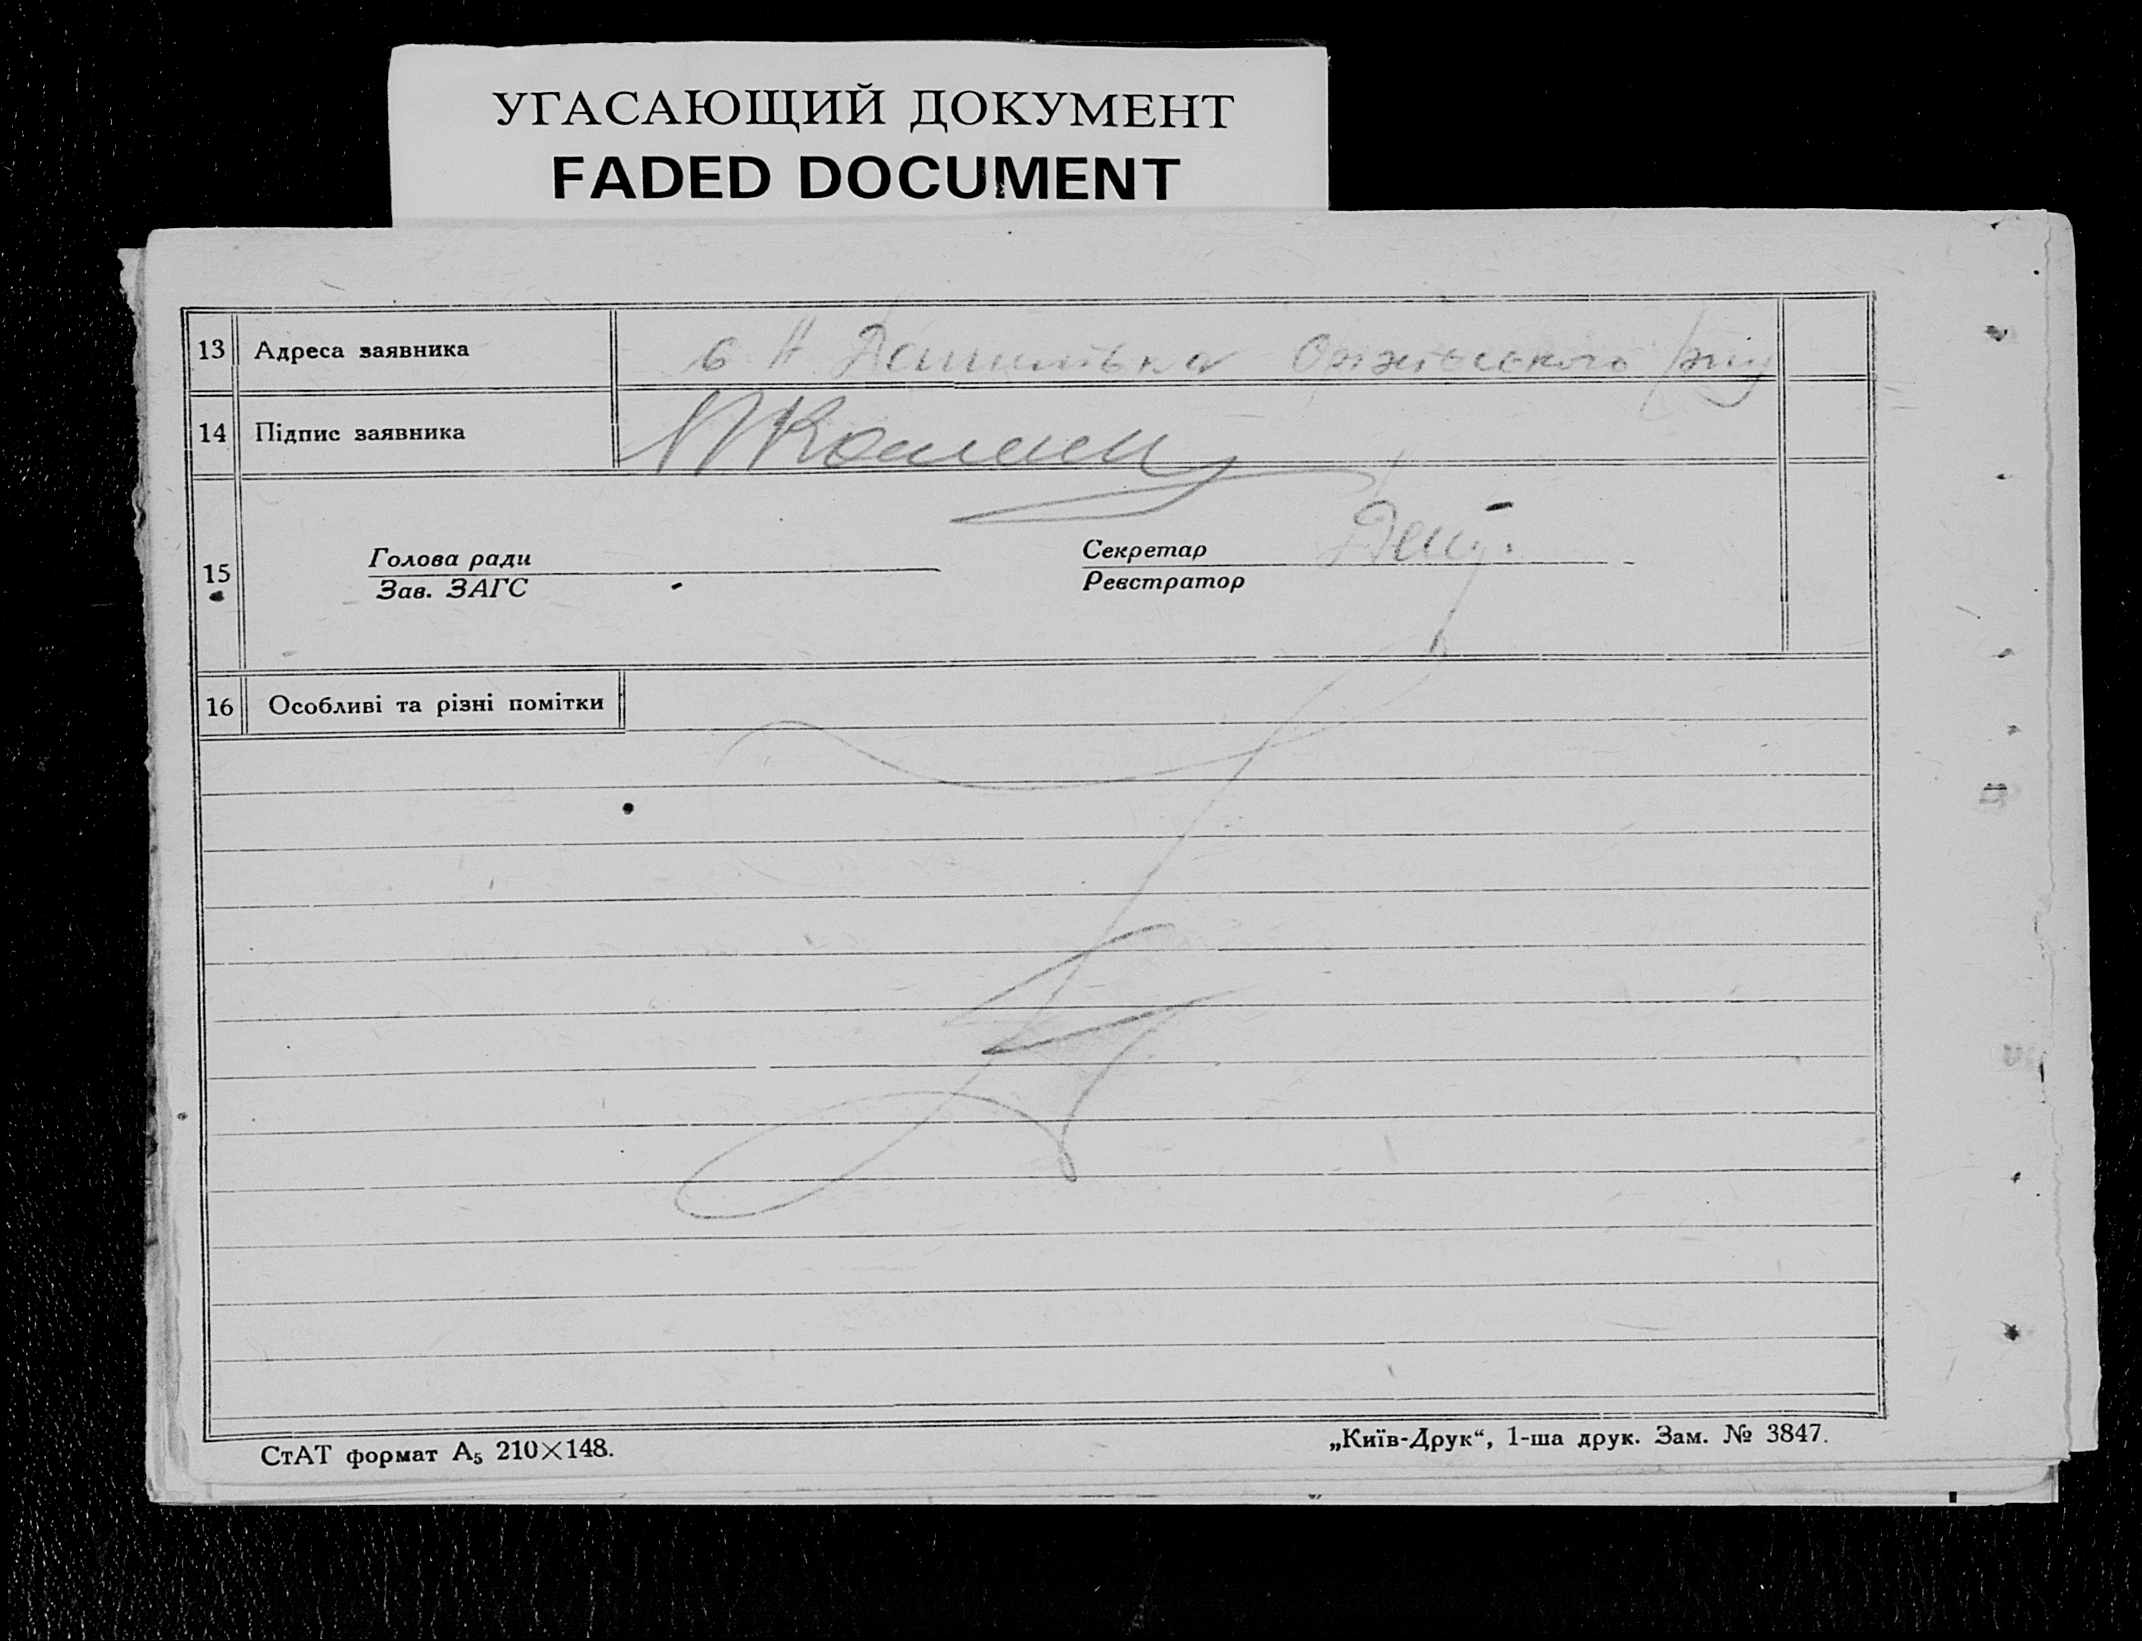 УГАСАЮЩИЙ ДОКУМЕНТ
FADED DOCUMENT
13 Адреса заявника с Н Оржицького р-ну
14 Підпис заявника
15 Голова ради Секретар
Зав. ЗАГС Реєстратор
16 Особливі та різні помітки
СтАТ формат А₅ 210×148. „Київ-Друк“, 1-ша друк. Зам. № 3847.